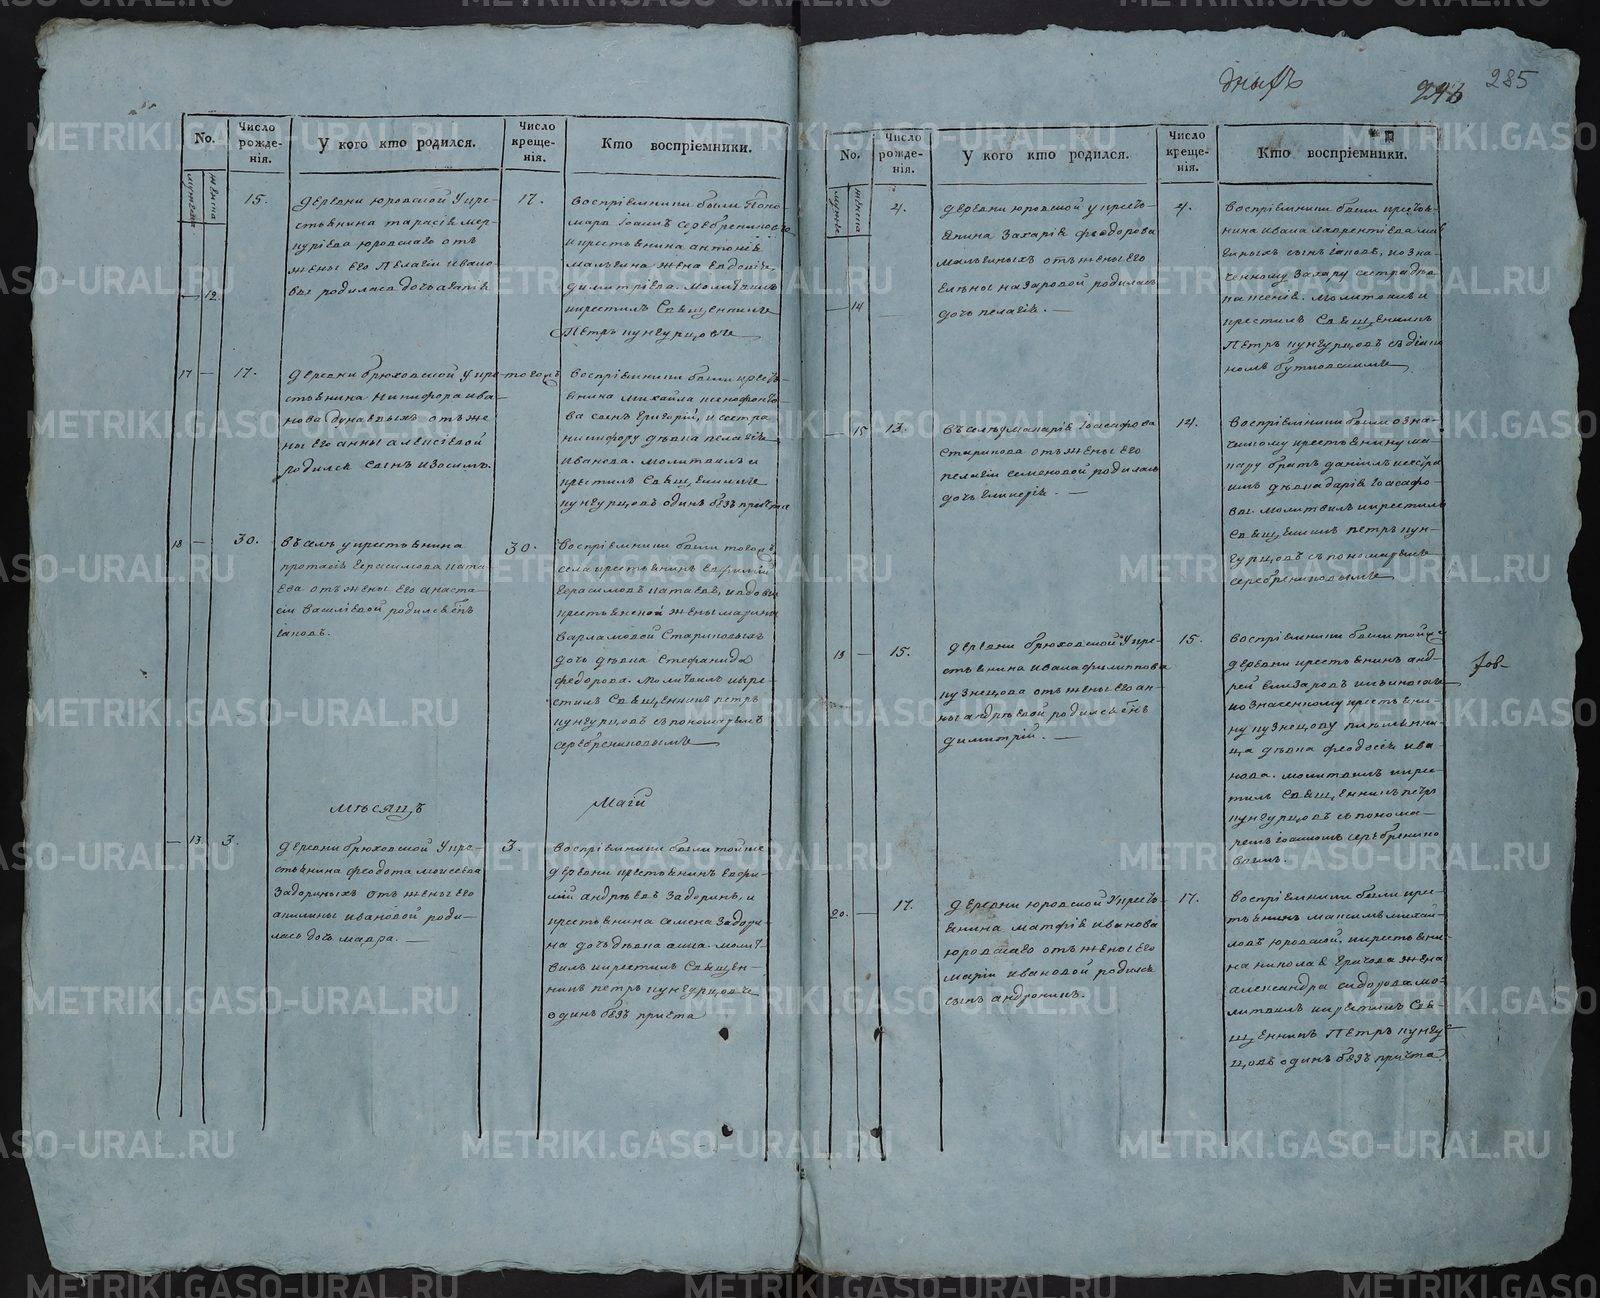 No.
Число рожде-нія.
У кого кто родился.
Число креще-нія.
Кто воспріемники.
15.
деревни юровской у кре-
стьянина тарасія мер-
курьева юровскаго отъ
жены его Пелагіи ивано-
вы родилась дочь
12.
17.
воспріемники были Поно-
марь іоаннъ серебрениковъ
и крестьянина антонія
жена евдокія
димитріева. Молитвилъ
и крестилъ Священникъ
Петръ кунгурцовъ
17 —
17.
деревни брюховской у кре-
стьянина Никифора ива-
нова дунаевыхъ отъ же-
ны его анны алексіевой
родился сынъ изосимъ.
тогожъ
воспріемники были кресть-
янина михайла
ва сынъ григорій, и сестра
никифору дѣвка пелагія
иванова. молитвилъ и
крестилъ Священникъ
кунгурцовъ одинъ безъ причта
18 —
30.
въ селѣ у крестьянина
протасія герасимова
отъ жены его анаста-
сіи василіевой родился сынъ
іаковъ.
30.
воспріемники были тогожъ
села крестьянинъ евфимій
герасимовъ
крестьянской жены марины
варламовой Стариковыхъ
дочь дѣвка стефанида
федорова. молитвилъ и кре-
стилъ Священникъ петръ
кунгурцовъ съ пономаремъ
серебрениковымъ
мѣсяцъ
Маій
— 13.
3.
деревни брюховской у кре-
стьянина федота моисеева
Задориныхъ отъ жены его
акилины ивановой роди-
лась дочь мавра. —
3.
воспріемники были тойже
деревни крестьянинъ евфи-
мій андрѣевъ Задоринъ, и
крестьянина Задори-
на дочь дѣвка молит-
вилъ и крестилъ Священ-
никъ петръ кунгурцовъ
одинъ безъ причта
285
No.
Число рожде-нія.
У кого кто родился.
Число креще-нія.
Кто воспріемники.
— 14
4.
деревни юровской у кресть-
янина Захарія феодорова
отъ жены его
елены назаровой родилась
дочь пелагія. —
4.
воспріемники были кресть-
янина ивана лаврентіева
сынъ іаковъ, и озна-
ченному Захару сестра дѣв-
ка ксенія. молитвилъ и
крестилъ Священникъ
Петръ кунгурцовъ съ діако-
номъ
— 15
13.
въ селѣ у макарія іоасафова
Старикова отъ жены его
пелагіи семеновой родилась
дочь гликерія. —
14.
воспріемники были озна-
ченному крестьянину ма-
кару братъ даніилъ и сестра
ихъ дѣвка дарія іоасафо-
вы. молитвилъ и крестилъ
Священникъ петръ кун-
гурцовъ съ пономаремъ
серебрениковымъ
19 —
15.
деревни брюховской у кре-
стьянина ивана филиппова
кузнецова отъ жены его ан-
ны андрѣевой родился сынъ
димитрій. —
15.
воспріемники были тойже
деревни крестьянинъ анд-
рей елизаровъ
и означенному крестьяни-
ну кузнецову племянни-
ца дѣвка феодосія ива-
нова. молитвилъ и кре-
стилъ Священникъ петръ
кунгурцовъ съ понома-
ремъ іоанномъ серебренико-
вымъ.
20. —
17.
деревни юровской у кресть-
янина матфія иванова
юровскаго отъ жены его
маріи ивановой родился
сынъ андроникъ.
17.
воспріемники были кре-
стьянинъ максимъ михай-
ловъ юровской, и крестьяни-
на николая жена
александра сидорова мо-
литвилъ и крестилъ Свя-
щенникъ Петръ кунгур-
цовъ одинъ безъ причта.
METRIKI.GASO-URAL.RU